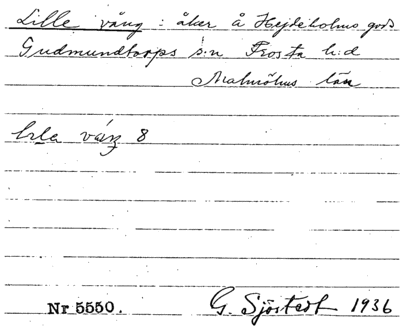 Lille vång : åker å Hejdeholms gods
Gudmundtorps s:n Frosta h:d
Malmöhus län
vång 8
Nr 5550. G. Sjöstedt 1936